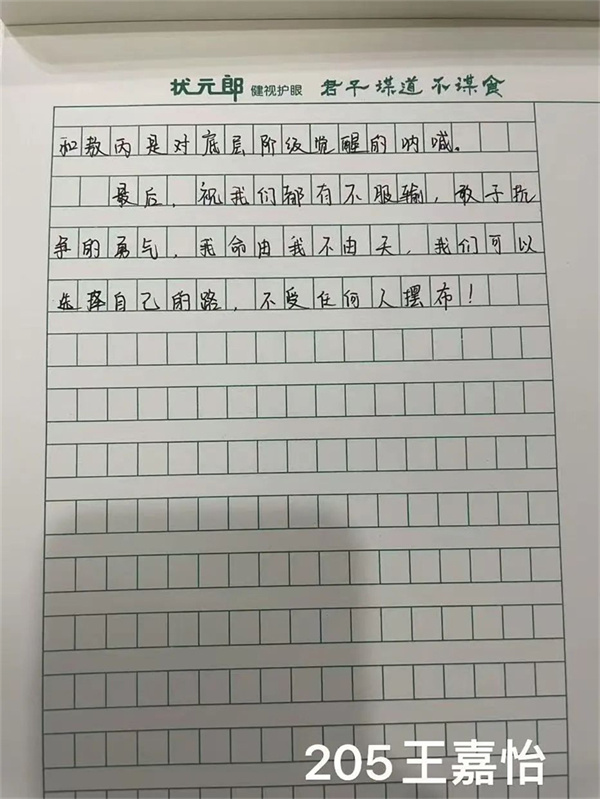 状元郎 健视护眼 君子谋道不谋食
和敖丙是对底层阶级觉醒的呐喊。
最后，祝我们都有不服输，敢于抗
争的勇气，我命由我不由天，我们可以
选择自己的路，不受任何人摆布！
205王嘉怡